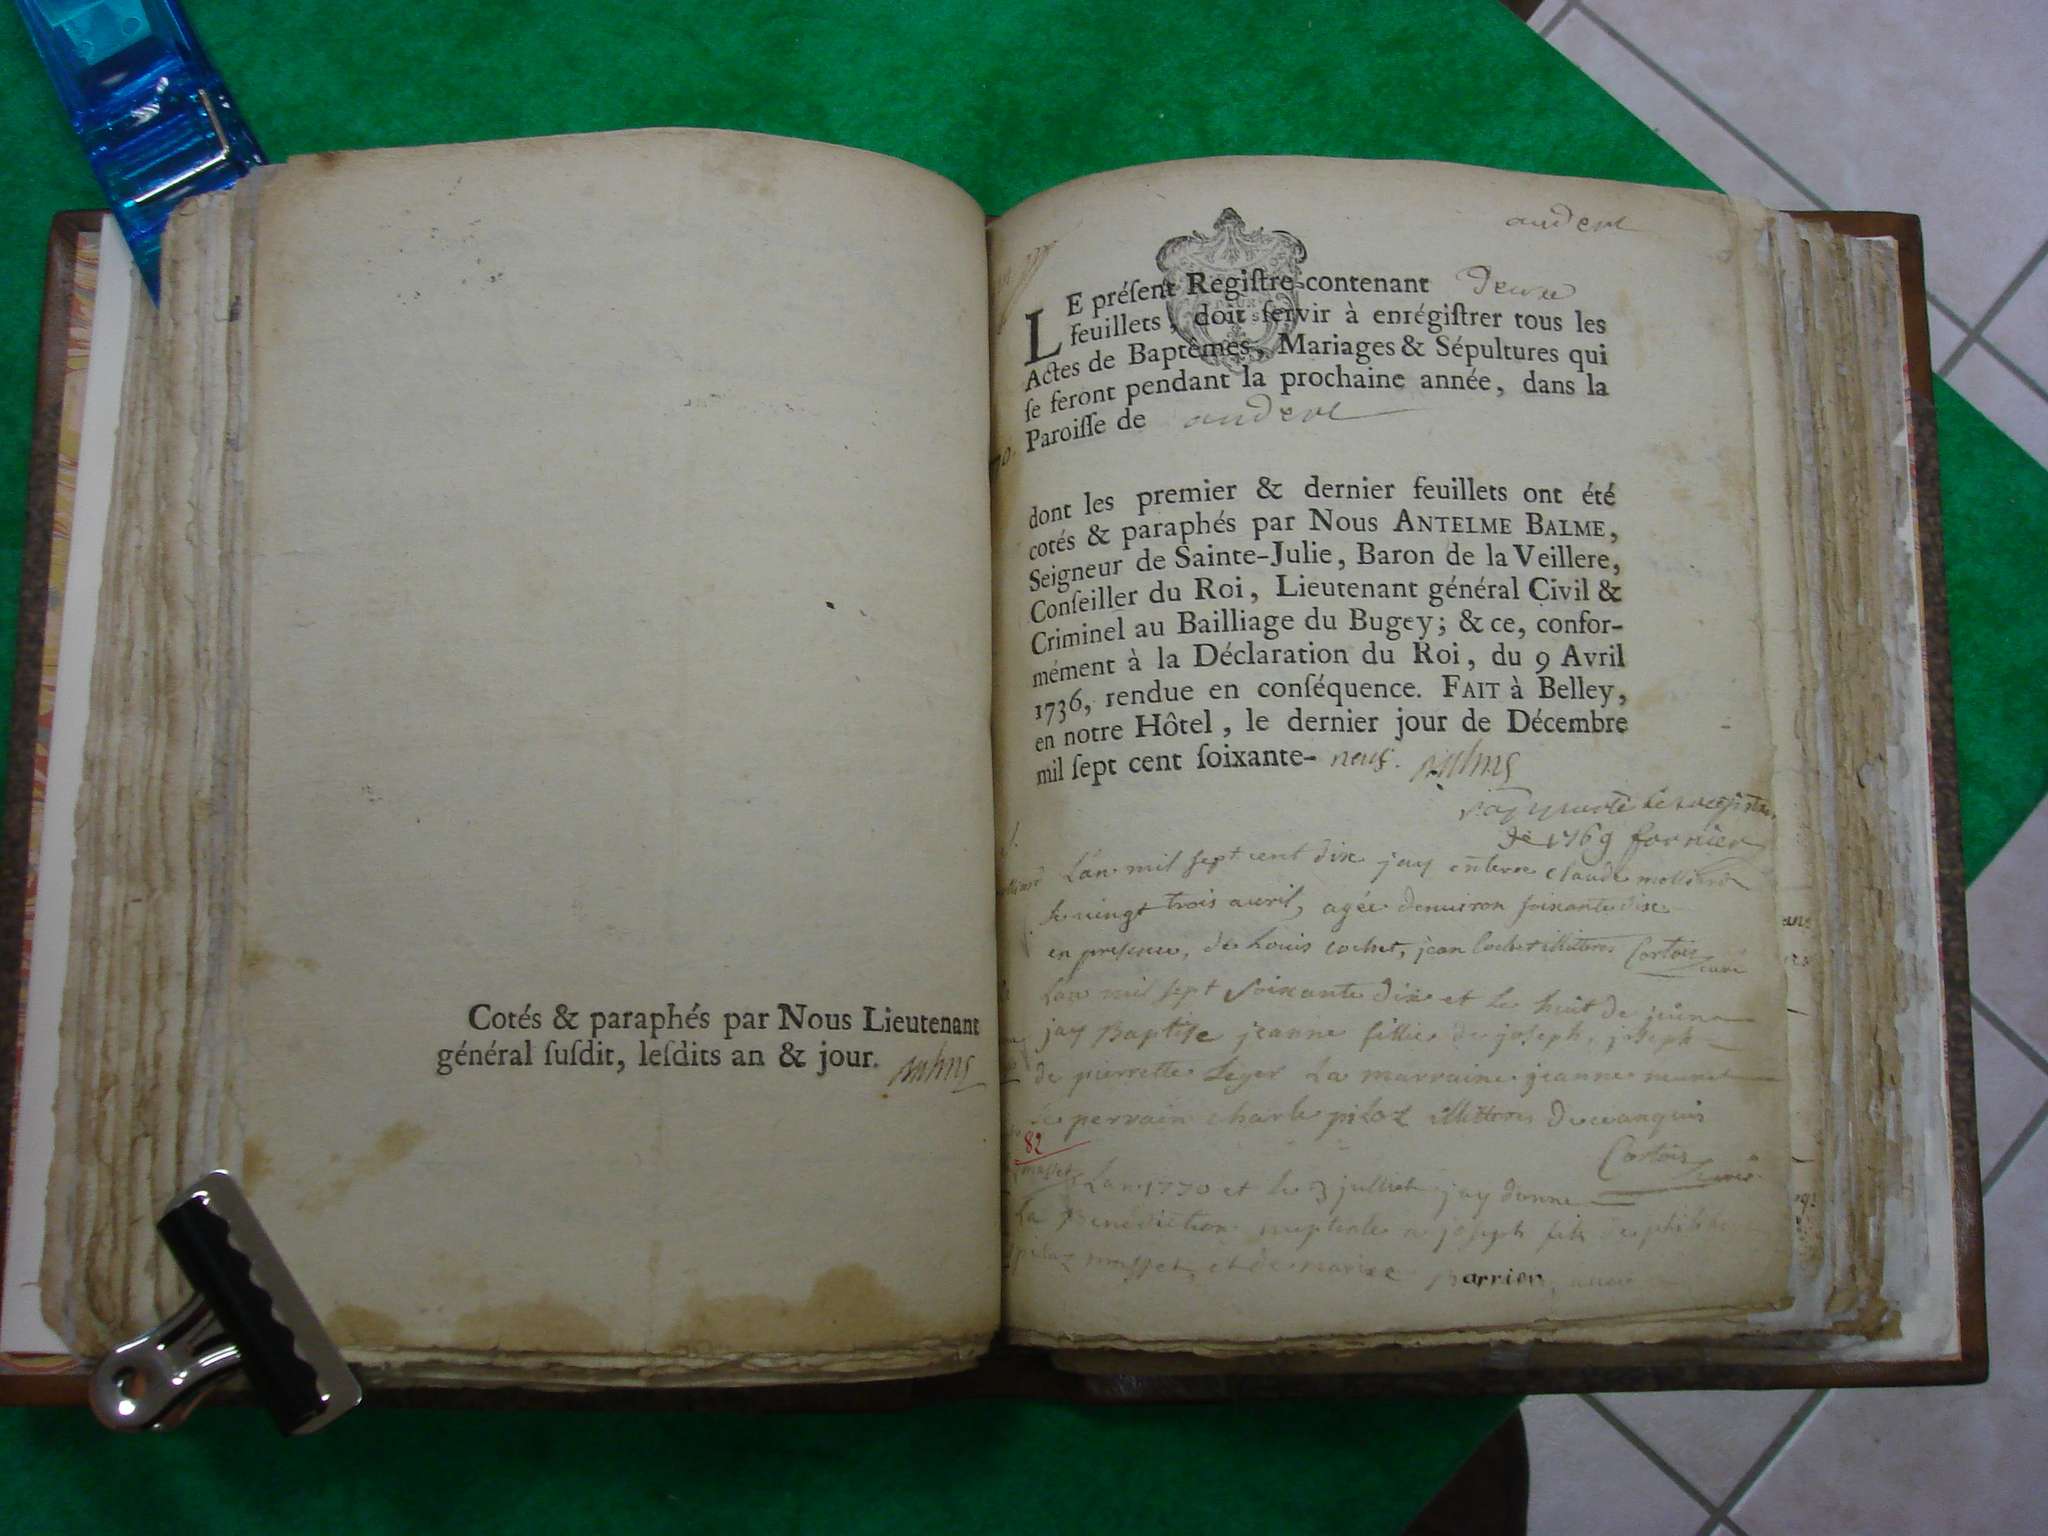 Cotés & paraphés par Nous Lieutenant
général ſuſdit, leſdits an & jour.
andert
LE préſent Regiſtre contenant deux
feuillets, doit ſervir à enrégiſtrer tous les
Actes de Baptêmes, Mariages & Sépultures qui
ſe feront pendant la prochaine année, dans la
Paroiſſe de andert
dont les premier & dernier feuillets ont été
cotés & paraphés par Nous ANTELME BALME,
Seigneur de Sainte-Julie, Baron de la Veillere,
Conſeiller du Roi, Lieutenant général Civil &
Criminel au Bailliage du Bugey; & ce, confor-
mément à la Déclaration du Roi, du 9 Avril
1736, rendue en conſéquence. FAIT à Belley,
en notre Hôtel, le dernier jour de Décembre
mil ſept cent ſoixante- neuf. Balme
de 1769
Lan mil sept cent dix jay enterre claude mollard
le vingt trois avril, agée denviron soixante dix
en presence, de Louis cochet, jean Cochet illiteres Cortois curé
Lan mil sept soixante dix et le huit de juin
jay Baptise jeanne fillie de joseph, joseph
de pierrette Leger La marraine jeanne
le perrain charle piloz illitteres
Cortois curé
82
Lan 1770 et le 3 julliet jay donne
La Benediction nuptiale a joseph fils de
pilaz musset, et de marie Barrier,